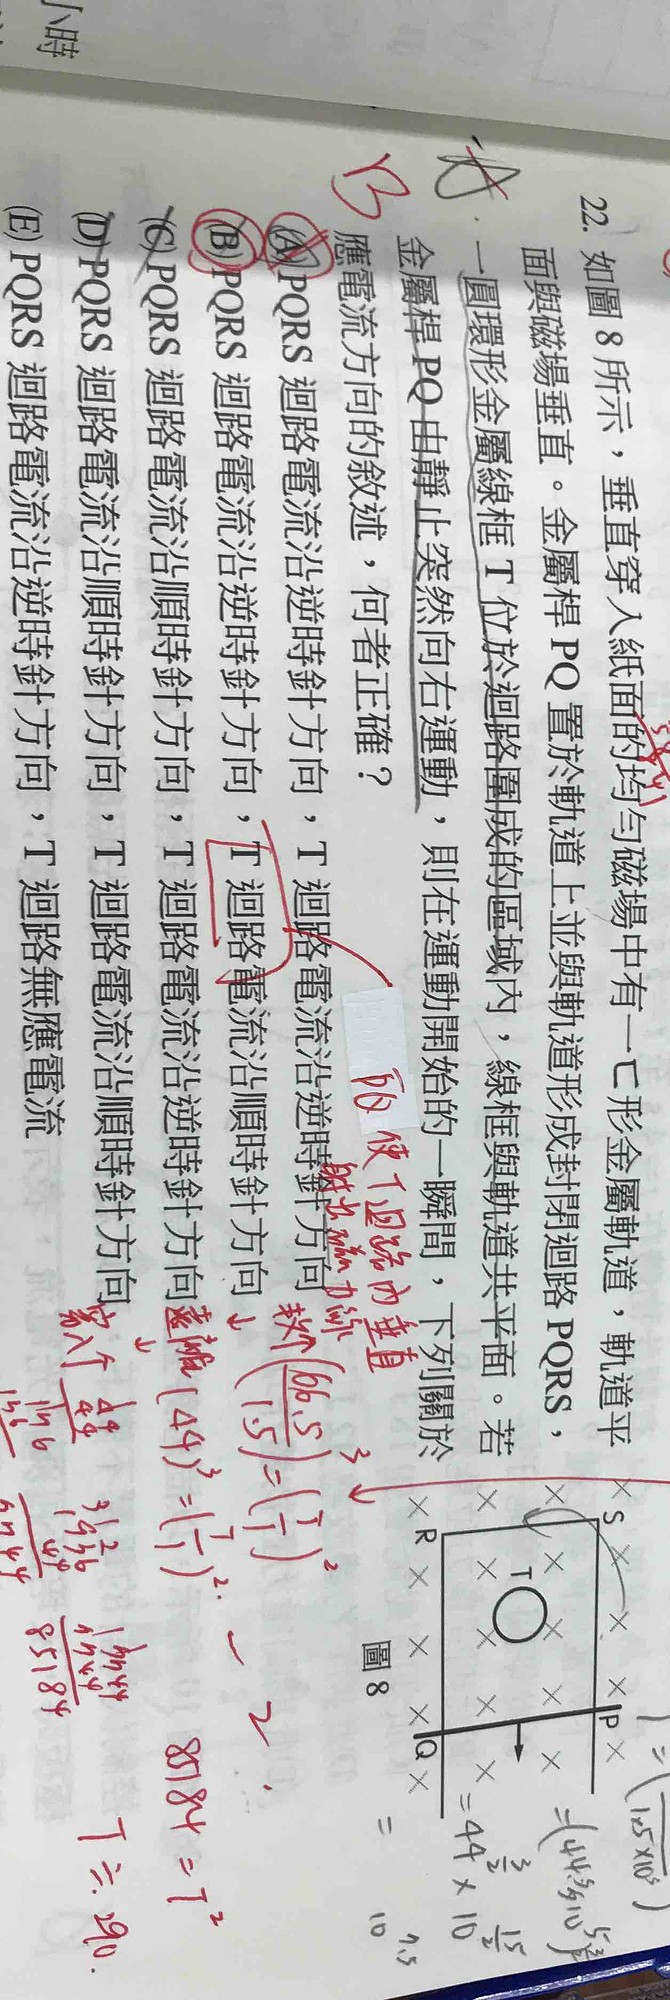 小時
22. 如圖 8 所示，垂直穿入紙面的均勻磁場中有一ㄈ形金屬軌道，軌道平
面與磁場垂直。金屬桿 PQ 置於軌道上並與軌道形成封閉迴路 PQRS，
一圓環形金屬線框 T 位於迴路圍成的區域內，線框與軌道共平面。若
金屬桿 PQ 由靜止突然向右運動，則在運動開始的一瞬間，下列關於
應電流方向的敘述，何者正確？
B
(A) PQRS 迴路電流沿逆時針方向，T 迴路電流沿逆時針方向
(B) PQRS 迴路電流沿逆時針方向，T 迴路電流沿順時針方向
(C) PQRS 迴路電流沿順時針方向，T 迴路電流沿逆時針方向
(D) PQRS 迴路電流沿順時針方向，T 迴路電流沿順時針方向
(E) PQRS 迴路電流沿逆時針方向，T 迴路無應電流
S
P
T
R
Q
圖 8
使 T 迴路內垂直
射出磁力線
(66.5/1.5)³ = (T/1)²
(44)³ = (T/1)²
85184 = T²
T ≒ 290.
44
44
1936
85184